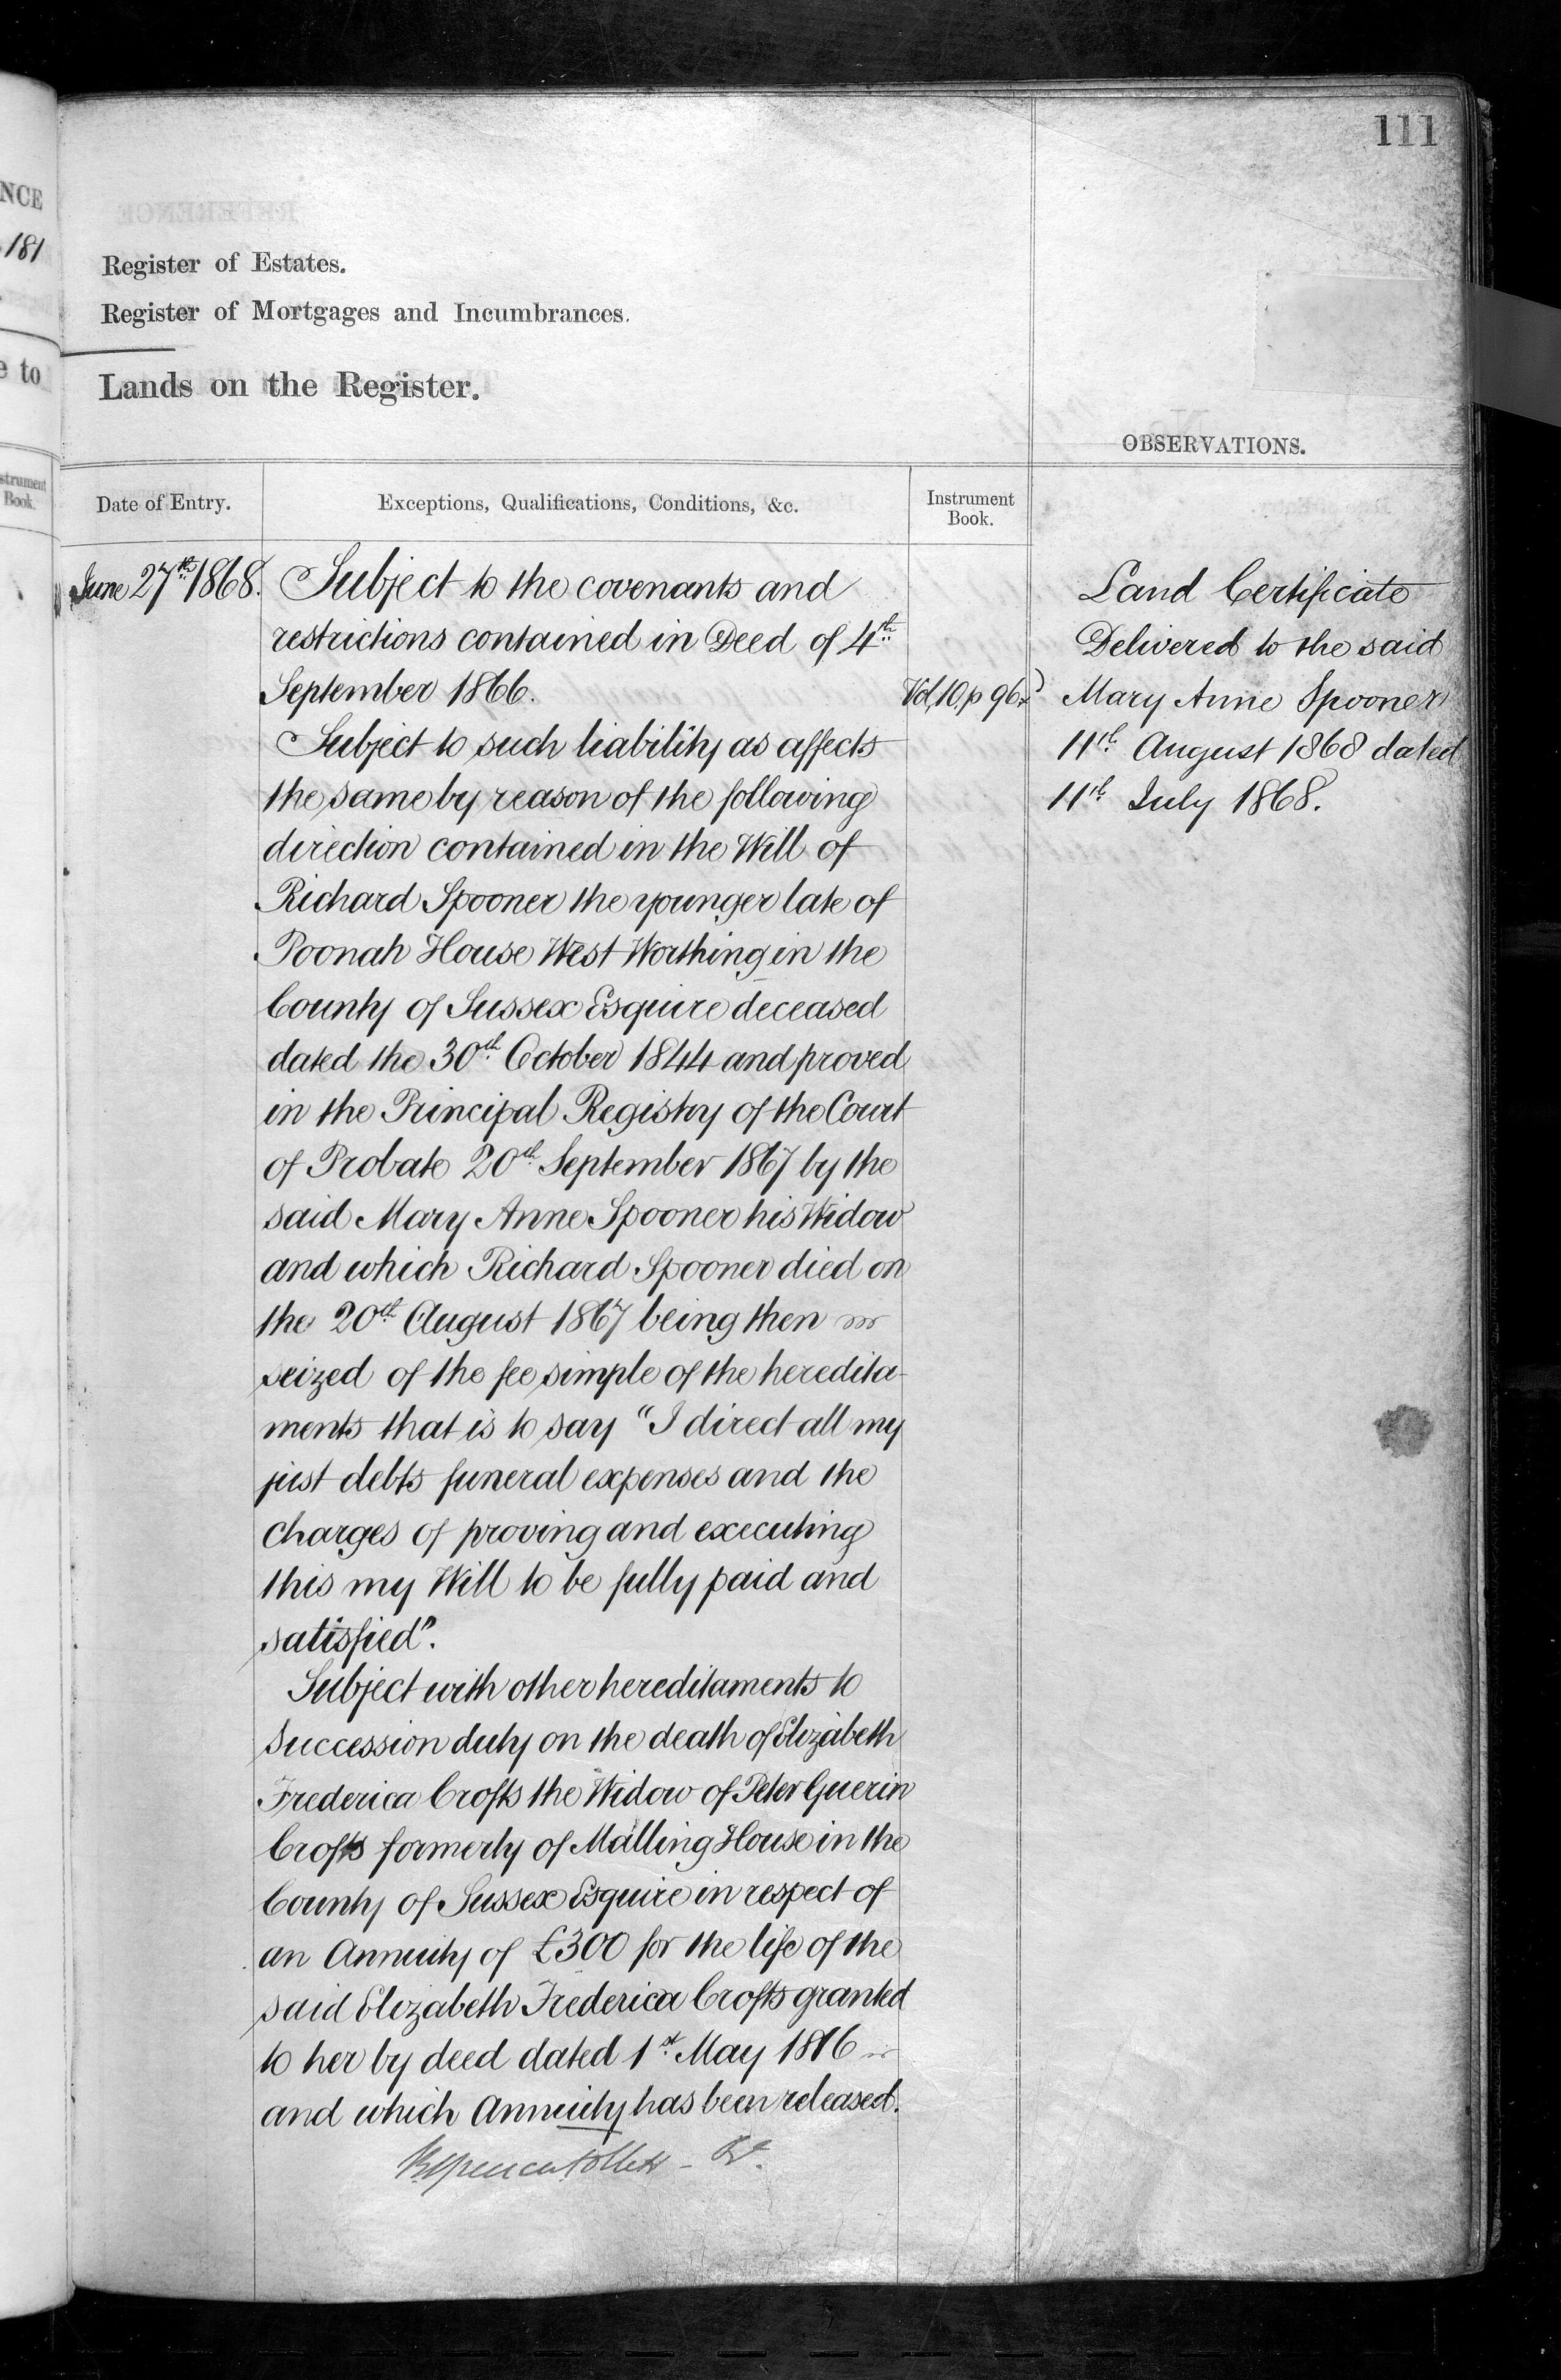 NCE
181
e to
strument
Book.
111
Register of Estates.
Register of Mortgages and Incumbrances.
Lands on the Register.
OBSERVATIONS.
Date of Entry.
Exceptions, Qualifications, Conditions, &c.
Instrument
Book.
June 27th 1868.
Subject to the covenants and
restrictions contained in Deed of 4th
September 1866.
Vol, 10, p 96
Subject to such liability as affects
the same by reason of the following
direction contained in the Will of
Richard Spooner the younger late of
Poonah House West Worthing in the
County of Sussex Esquire deceased
dated the 30th October 1844 and proved
in the Principal Registry of the Court
of Probate 20th September 1867 by the
said Mary Anne Spooner his Widow
and which Richard Spooner died on
the 20th August 1867 being then
seized of the fee simple of the heredita-
ments that is to say "I direct all my
just debts funeral expenses and the
charges of proving and executing
this my Will to be fully paid and
satisfied".
Subject with other hereditaments to
Succession duty on the death of Elizabeth
Frederica Crofts the Widow of Peter Guerin
Crofts formerly of Malling House in the
County of Sussex Esquire in respect of
an Annuity of £300 for the life of the
said Elizabeth Frederica Crofts granted
to her by deed dated 1st May 1816
and which Annuity has been released.
Land Certificate
Delivered to the said
Mary Anne Spooner
11th August 1868 dated
11th July 1868.